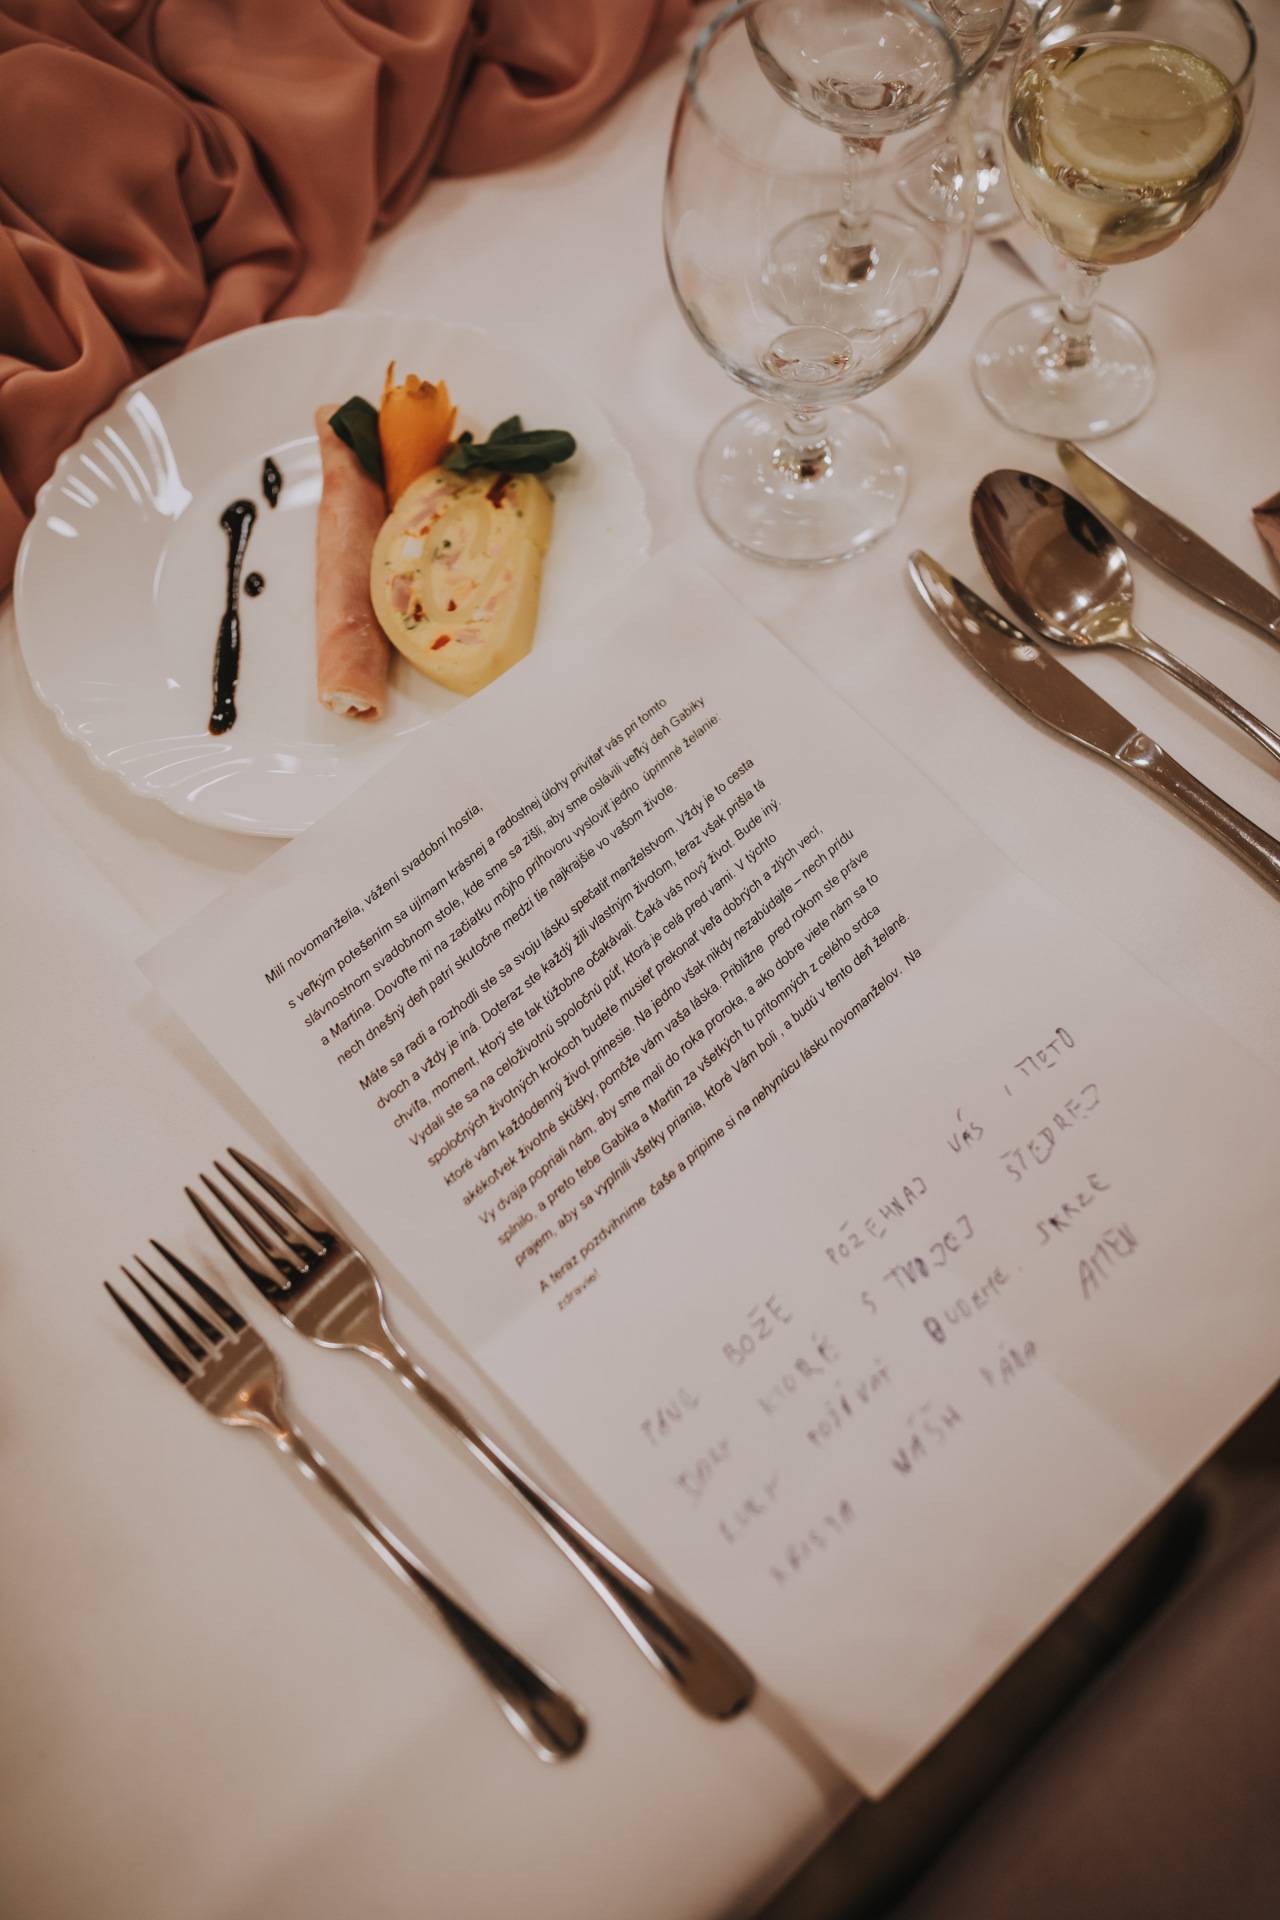 Milí novomanželia, vážení svadobní hostia,
s veľkým potešením sa ujímam krásnej a radostnej úlohy privítať vás pri tomto
slávnostnom svadobnom stole, kde sme sa zišli, aby sme oslávili veľký deň Gabiky
a Martina. Dovoľte mi na začiatku môjho príhovoru vysloviť jedno úprimné želanie:
nech dnešný deň patrí skutočne medzi tie najkrajšie vo vašom živote.
Máte sa radi a rozhodli ste sa svoju lásku spečatiť manželstvom. Vždy je to cesta
dvoch a vždy je iná. Doteraz ste každý žili vlastným životom, teraz však prišla tá
chvíľa, moment, ktorý ste tak túžobne očakávali. Čaká vás nový život. Bude iný.
Vydali ste sa na celoživotnú spoločnú púť, ktorá je celá pred vami. V týchto
spoločných životných krokoch budete musieť prekonať veľa dobrých a zlých vecí,
ktoré vám každodenný život prinesie. Na jedno však nikdy nezabúdajte – nech prídu
akékoľvek životné skúšky, pomôže vám vaša láska. Približne pred rokom ste práve
Vy dvaja popriali nám, aby sme mali do roka proroka, a ako dobre viete nám sa to
splnilo, a preto tebe Gabika a Martin za všetkých tu prítomných z celého srdca
prajem, aby sa vyplnili všetky priania, ktoré Vám boli , a budú v tento deň želané.
A teraz pozdvihnime čaše a pripime si na nehynúcu lásku novomanželov. Na
zdravie!
PANE BOŽE POŽEHNAJ VÁS I TIETO
DARY KTORÉ S TVOJEJ ŠTEDREJ
RUKY POŽÍVAŤ BUDEME. SKRZE
KRISTA NÁŠH PÁNA AMEN